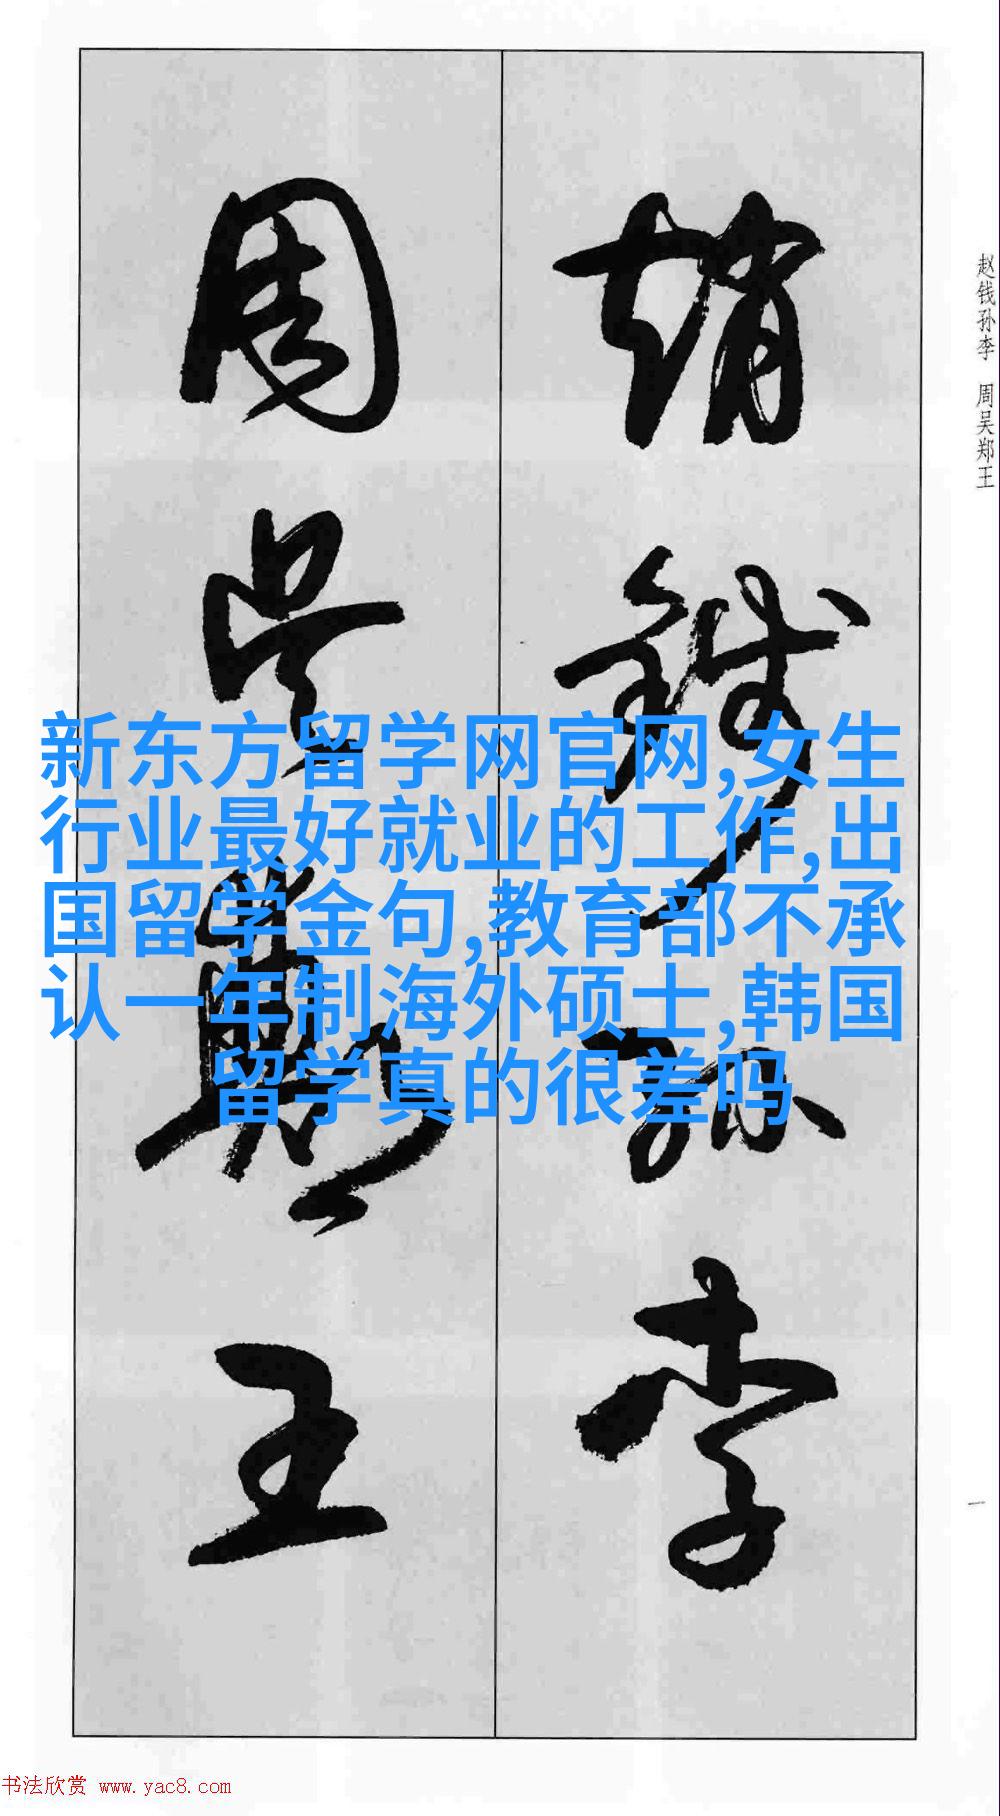 赵钱孙李 周吴郑王
趙錢孫李
周吴鄭王
新东方留学网官网,女生
行业最好就业的工作,出
国留学金句,教育部不承
认一年制海外硕士,韩国
留学真的很差吗
一
书法欣赏 www.yac8.com